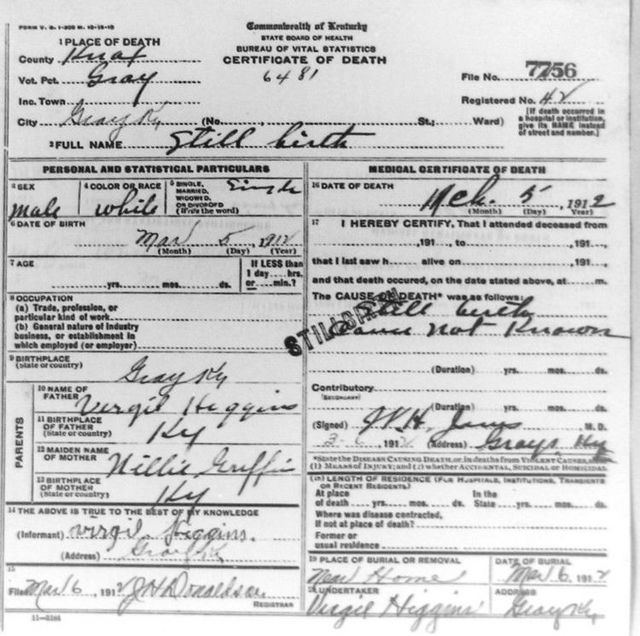 FORM V. S. 1-30S M. 12-15-10
Commonwealth of Kentucky
STATE BOARD OF HEALTH
BUREAU OF VITAL STATISTICS
CERTIFICATE OF DEATH
6481
File No. 7756
Registered No. 42
[If death occurred in a hospital or institution, give its NAME instead of street and number.]
1 PLACE OF DEATH
County Knox
Vot. Pct. Gray
Inc. Town
City Gray Ky (No. St.; Ward)
2 FULL NAME Still birth
PERSONAL AND STATISTICAL PARTICULARS
3 SEX male
4 COLOR OR RACE white
5 SINGLE, MARRIED, WIDOWED, OR DIVORCED (Write the word) Single
6 DATE OF BIRTH Mar 5, 1912
(Month) (Day) (Year)
7 AGE
yrs. mos. ds.
If LESS than 1 day hrs. or min.?
8 OCCUPATION
(a) Trade, profession, or particular kind of work
(b) General nature of industry business, or establishment in which employed (or employer)
9 BIRTHPLACE
(State or country) Gray Ky
PARENTS
10 NAME OF FATHER Virgil Higgins
11 BIRTHPLACE OF FATHER (State or country) Ky
12 MAIDEN NAME OF MOTHER Griffin
13 BIRTHPLACE OF MOTHER (State or country) Ky
14 THE ABOVE IS TRUE TO THE BEST OF MY KNOWLEDGE
(Informant) Virgil Higgins.
(Address) Gray Ky
15
Filed Mar 6, 1912 J H Donaldson
REGISTRAR
11-3184
MEDICAL CERTIFICATE OF DEATH
16 DATE OF DEATH Mch. 5, 1912
(Month) (Day) (Year)
17 I HEREBY CERTIFY, That I attended deceased from
, 191 to , 191
that I last saw h alive on , 191
and that death occurred, on the date stated above, at m.
The CAUSE OF DEATH* was as follows:
Still birth
Cause not Known
STILLBIRTH
(Duration) yrs. mos. ds.
Contributory
(SECONDARY)
(Duration) yrs. mos. ds.
(Signed) Jones M. D.
3-6, 1912 (Address) Grays, Ky
*State the DISEASE CAUSING DEATH, or in deaths from VIOLENT CAUSES state (1) MEANS OF INJURY; and (2) whether ACCIDENTAL, SUICIDAL or HOMICIDAL
18 LENGTH OF RESIDENCE (FOR HOSPITALS, INSTITUTIONS, TRANSIENTS OR RECENT RESIDENTS)
At place of death yrs. mos. ds. In the State yrs. mos. ds.
Where was disease contracted, if not at place of death?
Former or usual residence
19 PLACE OF BURIAL OR REMOVAL Near Home
DATE OF BURIAL Mar 6, 1912
20 UNDERTAKER Virgil Higgins
ADDRESS Gray Ky